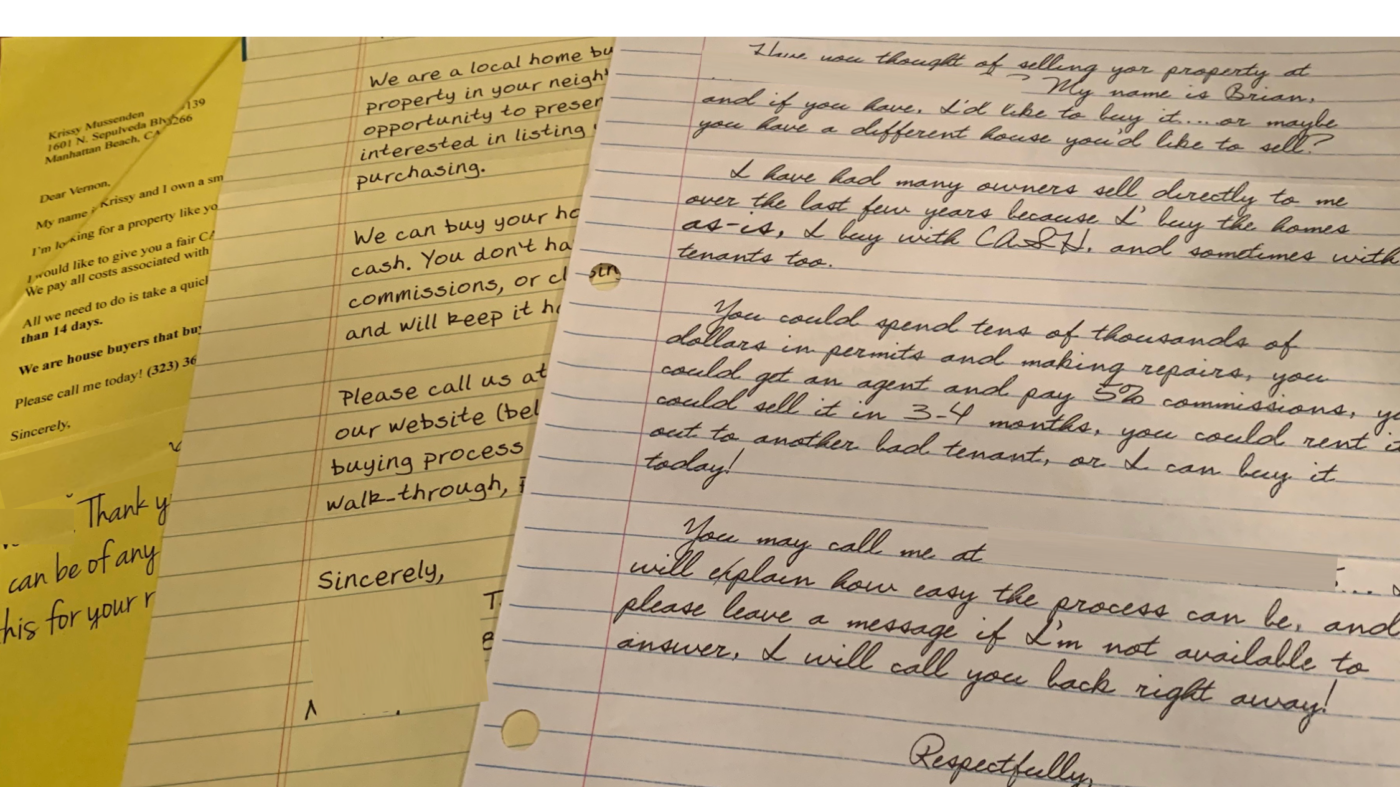 Krissy Mussenden
1601 N. Sepulveda Blv
139
Manhattan Beach, CA
3266
Dear Vernon,
My name Krissy and I own a sm
I'm king for a property like yo
would like to give you a fair CA
We pay all costs associated with
All we need to do is take a quic
than 14 days.
We are house buyers that bu
Please call me today! (323) 36
Sincerely,
Thank y
can be of any
his for your r
We are a local home bu
property in your neigh
opportunity to preser
interested in listing
purchasing.
We can buy your ho
cash. You don't ha
commissions, or cl
and will keep it h
Please call us at
our website (bel
buying process
walk-through,
Sincerely,
T
B
Have you thought of selling yor property at
? My name is Brian,
and if you have, I'd like to buy it.... or maybe
you have a different house you'd like to sell?
I have had many owners sell directly to me
over the last few years because I' buy the homes
as-is, I buy with CASH, and sometimes with
tenants too.
You could spend tens of thousands of
dollars in permits and making repairs, you
could get an agent and pay 5% commissions, yo
could sell it in 3-4 months, you could rent it
out to another bad tenant, or I can buy it
today!
You may call me at
.... I
will explain how easy the process can be, and
please leave a message if I'm not available to
answer, I will call you back right away!
Respectfully,